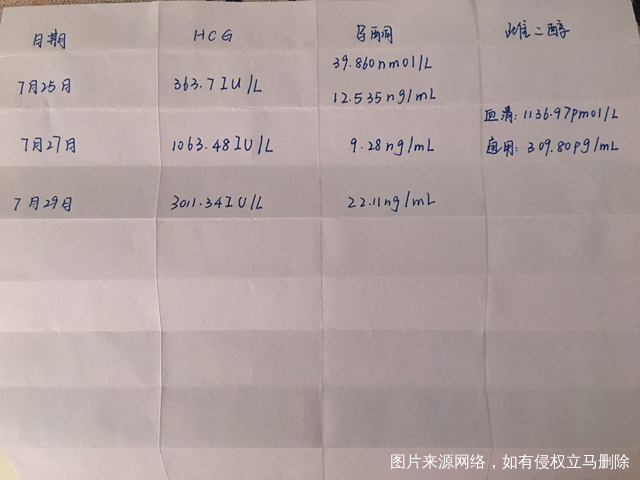 日期 HCG 孕酮 雌二醇
39.860nmol/L
7月25日 363.7IU/L
12.535ng/mL
血清：1136.97pmol/L
7月27日 1063.48IU/L 9.28ng/mL 309.80pg/mL
7月29日 3011.34IU/L 22.11ng/mL
图片来源网络，如有侵权立马删除